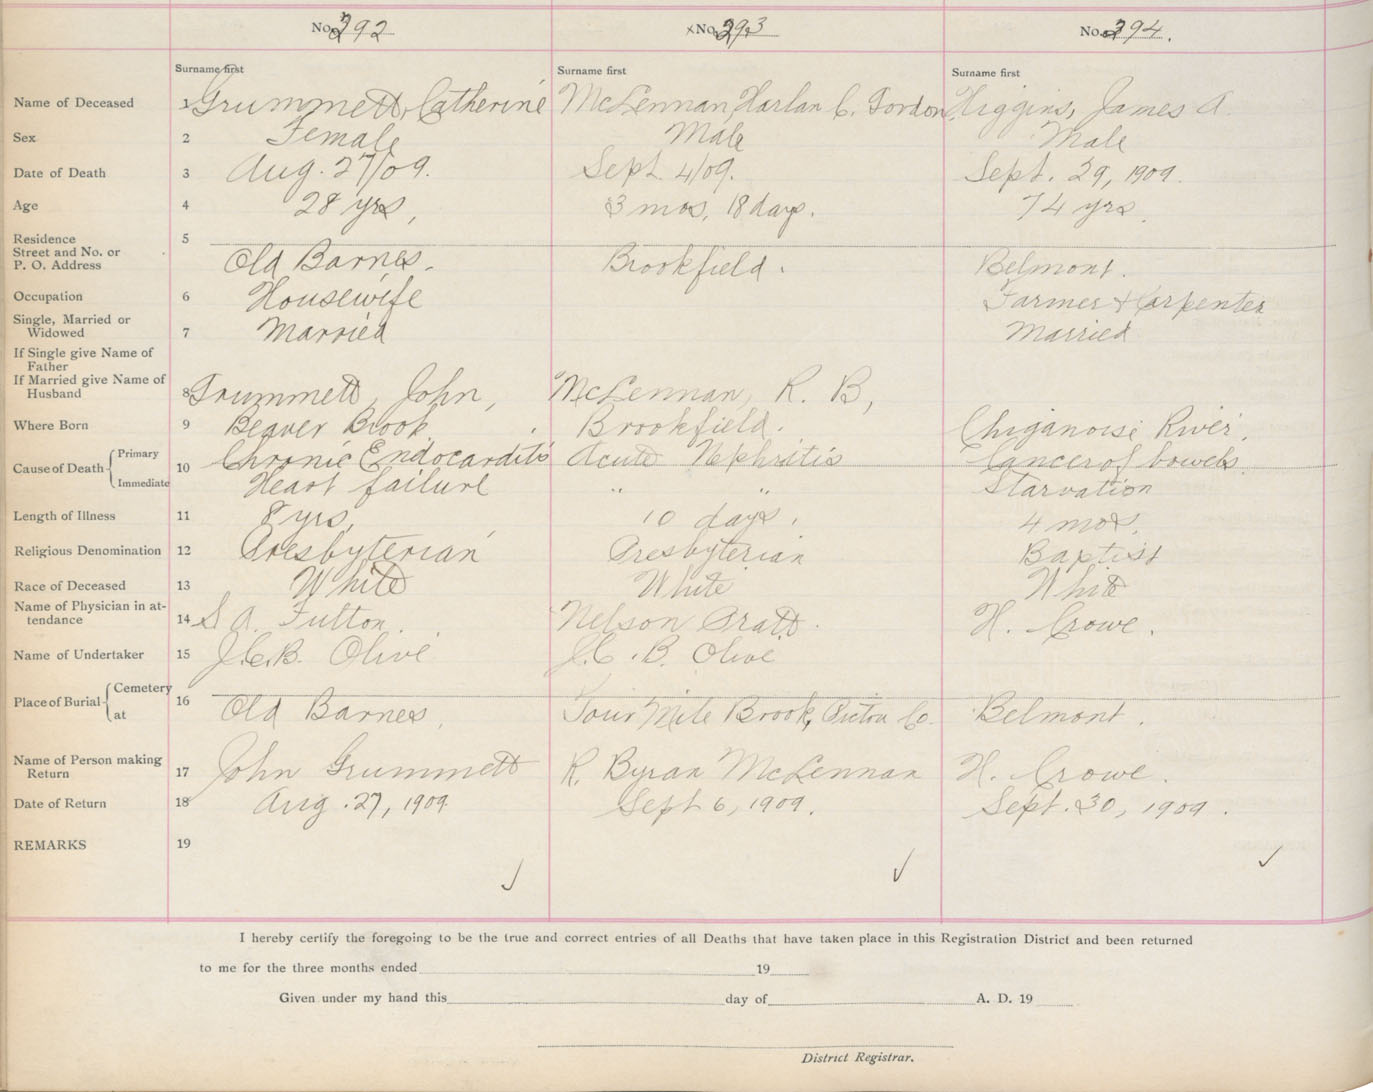 No. 392 No. 393 No. 394.
Surname first Surname first Surname first
Name of Deceased 1 Grummett, Catherine McLennan, Harlan C. Gordon Higgins, James A
Sex 2 Female Male Male
Date of Death 3 Aug. 27/09. Sept. 4/09. Sept. 29, 1909.
Age 4 28 yrs, 3 mos, 18 days. 74 yrs.
Residence 5
Street and No. or
P. O. Address Old Barnes. Brookfield. Belmont.
Occupation 6 Housewife Farmer & Carpenter
Single, Married or
Widowed 7 Married Married
If Single give Name of
Father
If Married give Name of
Husband 8 Grummett, John, McLennan, R. B,
Where Born 9 Beaver Brook. Brookfield. Chiganoise River.
Cause of Death Primary 10 Chronic Endocarditis Acute Nephritis Cancer of bowels.
Immediate Heart failure " " Starvation
Length of Illness 11 8 yrs, 10 days, 4 mos,
Religious Denomination 12 Presbyterian Presbyterian Baptist
Race of Deceased 13 White White White
Name of Physician in at-
tendance 14 S. A. Fulton. Nelson Pratt. H. Crowe.
Name of Undertaker 15 J.C.B. Olive J.C.B. Olive
Place of Burial Cemetery 16
at Old Barnes, Four Mile Brook, Pictou Co. Belmont.
Name of Person making
Return 17 John Grummett R. Byran McLennan H. Crowe.
Date of Return 18 Aug. 27, 1909 Sept 6, 1909. Sept. 30, 1909.
REMARKS 19
I hereby certify the foregoing to be the true and correct entries of all Deaths that have taken place in this Registration District and been returned
to me for the three months ended 19
Given under my hand this day of A. D. 19
District Registrar.